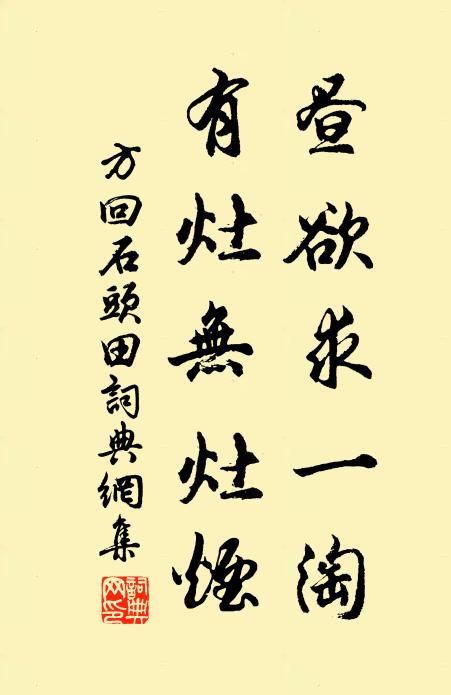 昼欲求一淘
有灶無灶煙
方回石頭田詞典網集